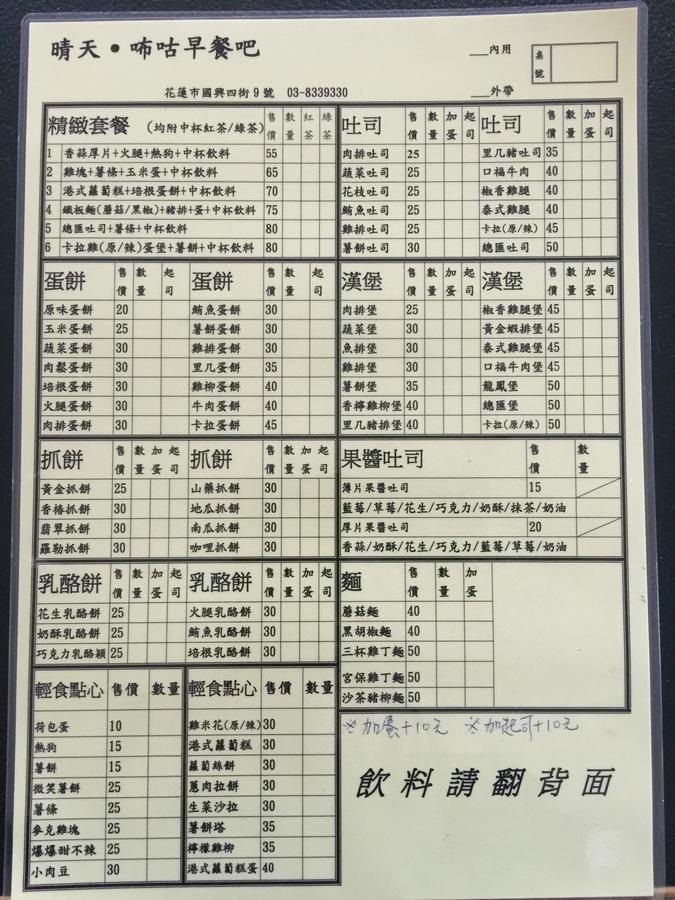 晴天•咘咕早餐吧
__內用
桌號
花蓮市國興四街9號 03-8339330
__外帶
精緻套餐 (均附中杯紅茶/綠茶) 售價 數量 紅茶 綠茶
1 香蒜厚片+火腿+熱狗+中杯飲料 55
2 雞塊+薯條+玉米蛋+中杯飲料 65
3 港式蘿蔔糕+培根蛋餅+中杯飲料 70
4 鐵板麵(蘑菇/黑椒)+豬排+蛋+中杯飲料 75
5 總匯吐司+薯條+中杯飲料 80
6 卡拉雞(原/辣)蛋堡+薯餅+中杯飲料 80
吐司 售價 數量 加蛋 起司 吐司 售價 數量 加蛋 起司
肉排吐司 25 里几豬吐司 35
蔬菜吐司 25 口福牛肉 40
花枝吐司 25 椒香雞腿 40
鮪魚吐司 25 泰式雞腿 40
雞排吐司 25 卡拉(原/辣) 45
薯餅吐司 30 總匯吐司 50
蛋餅 售價 數量 起司 蛋餅 售價 數量 起司
原味蛋餅 20 鮪魚蛋餅 30
玉米蛋餅 25 薯餅蛋餅 30
蔬菜蛋餅 30 雞排蛋餅 30
肉鬆蛋餅 30 里几蛋餅 35
培根蛋餅 30 雞柳蛋餅 40
火腿蛋餅 30 牛肉蛋餅 40
肉排蛋餅 30 卡拉蛋餅 45
漢堡 售價 數量 加蛋 起司 漢堡 售價 數量 加蛋 起司
肉排堡 25 椒香雞腿堡 45
蔬菜堡 30 黃金蝦排堡 45
魚排堡 30 泰式雞腿堡 45
雞排堡 30 口福牛肉堡 45
薯餅堡 35 龍鳳堡 50
香檸雞柳堡 40 總匯堡 50
里几豬排堡 40 卡拉(原/辣) 50
抓餅 售價 數量 加蛋 起司 抓餅 售價 數量 加蛋 起司
黃金抓餅 25 山藥抓餅 30
香椿抓餅 30 地瓜抓餅 30
翡翠抓餅 30 南瓜抓餅 30
羅勒抓餅 30 咖哩抓餅 30
果醬吐司 售價 數量
薄片果醬吐司 15
藍莓/草莓/花生/巧克力/奶酥/抹茶/奶油
厚片果醬吐司 20
香蒜/奶酥/花生/巧克力/藍莓/草莓/奶油
乳酪餅 售價 數量 加蛋 起司 乳酪餅 售價 數量 加蛋 起司
花生乳酪餅 25 火腿乳酪餅 30
奶酥乳酪餅 25 鮪魚乳酪餅 30
巧克力乳酪穎 25 培根乳酪餅 30
麵 售價 數量 加蛋
蘑菇麵 40
黑胡椒麵 40
三杯雞丁麵 50
宮保雞丁麵 50
沙茶豬柳麵 50
輕食點心 售價 數量 輕食點心 售價 數量
荷包蛋 10 雞米花(原/辣) 30
熱狗 15 港式蘿蔔糕 30
薯餅 15 蘿蔔絲餅 30
微笑薯餅 25 蔥肉拉餅 30
薯條 25 生菜沙拉 30
麥克雞塊 25 薯餅塔 35
爆爆甜不辣 25 檸檬雞柳 35
小肉豆 30 港式蘿蔔糕蛋 40
※加蛋+10元 ※加起司+10元
飲料請翻背面